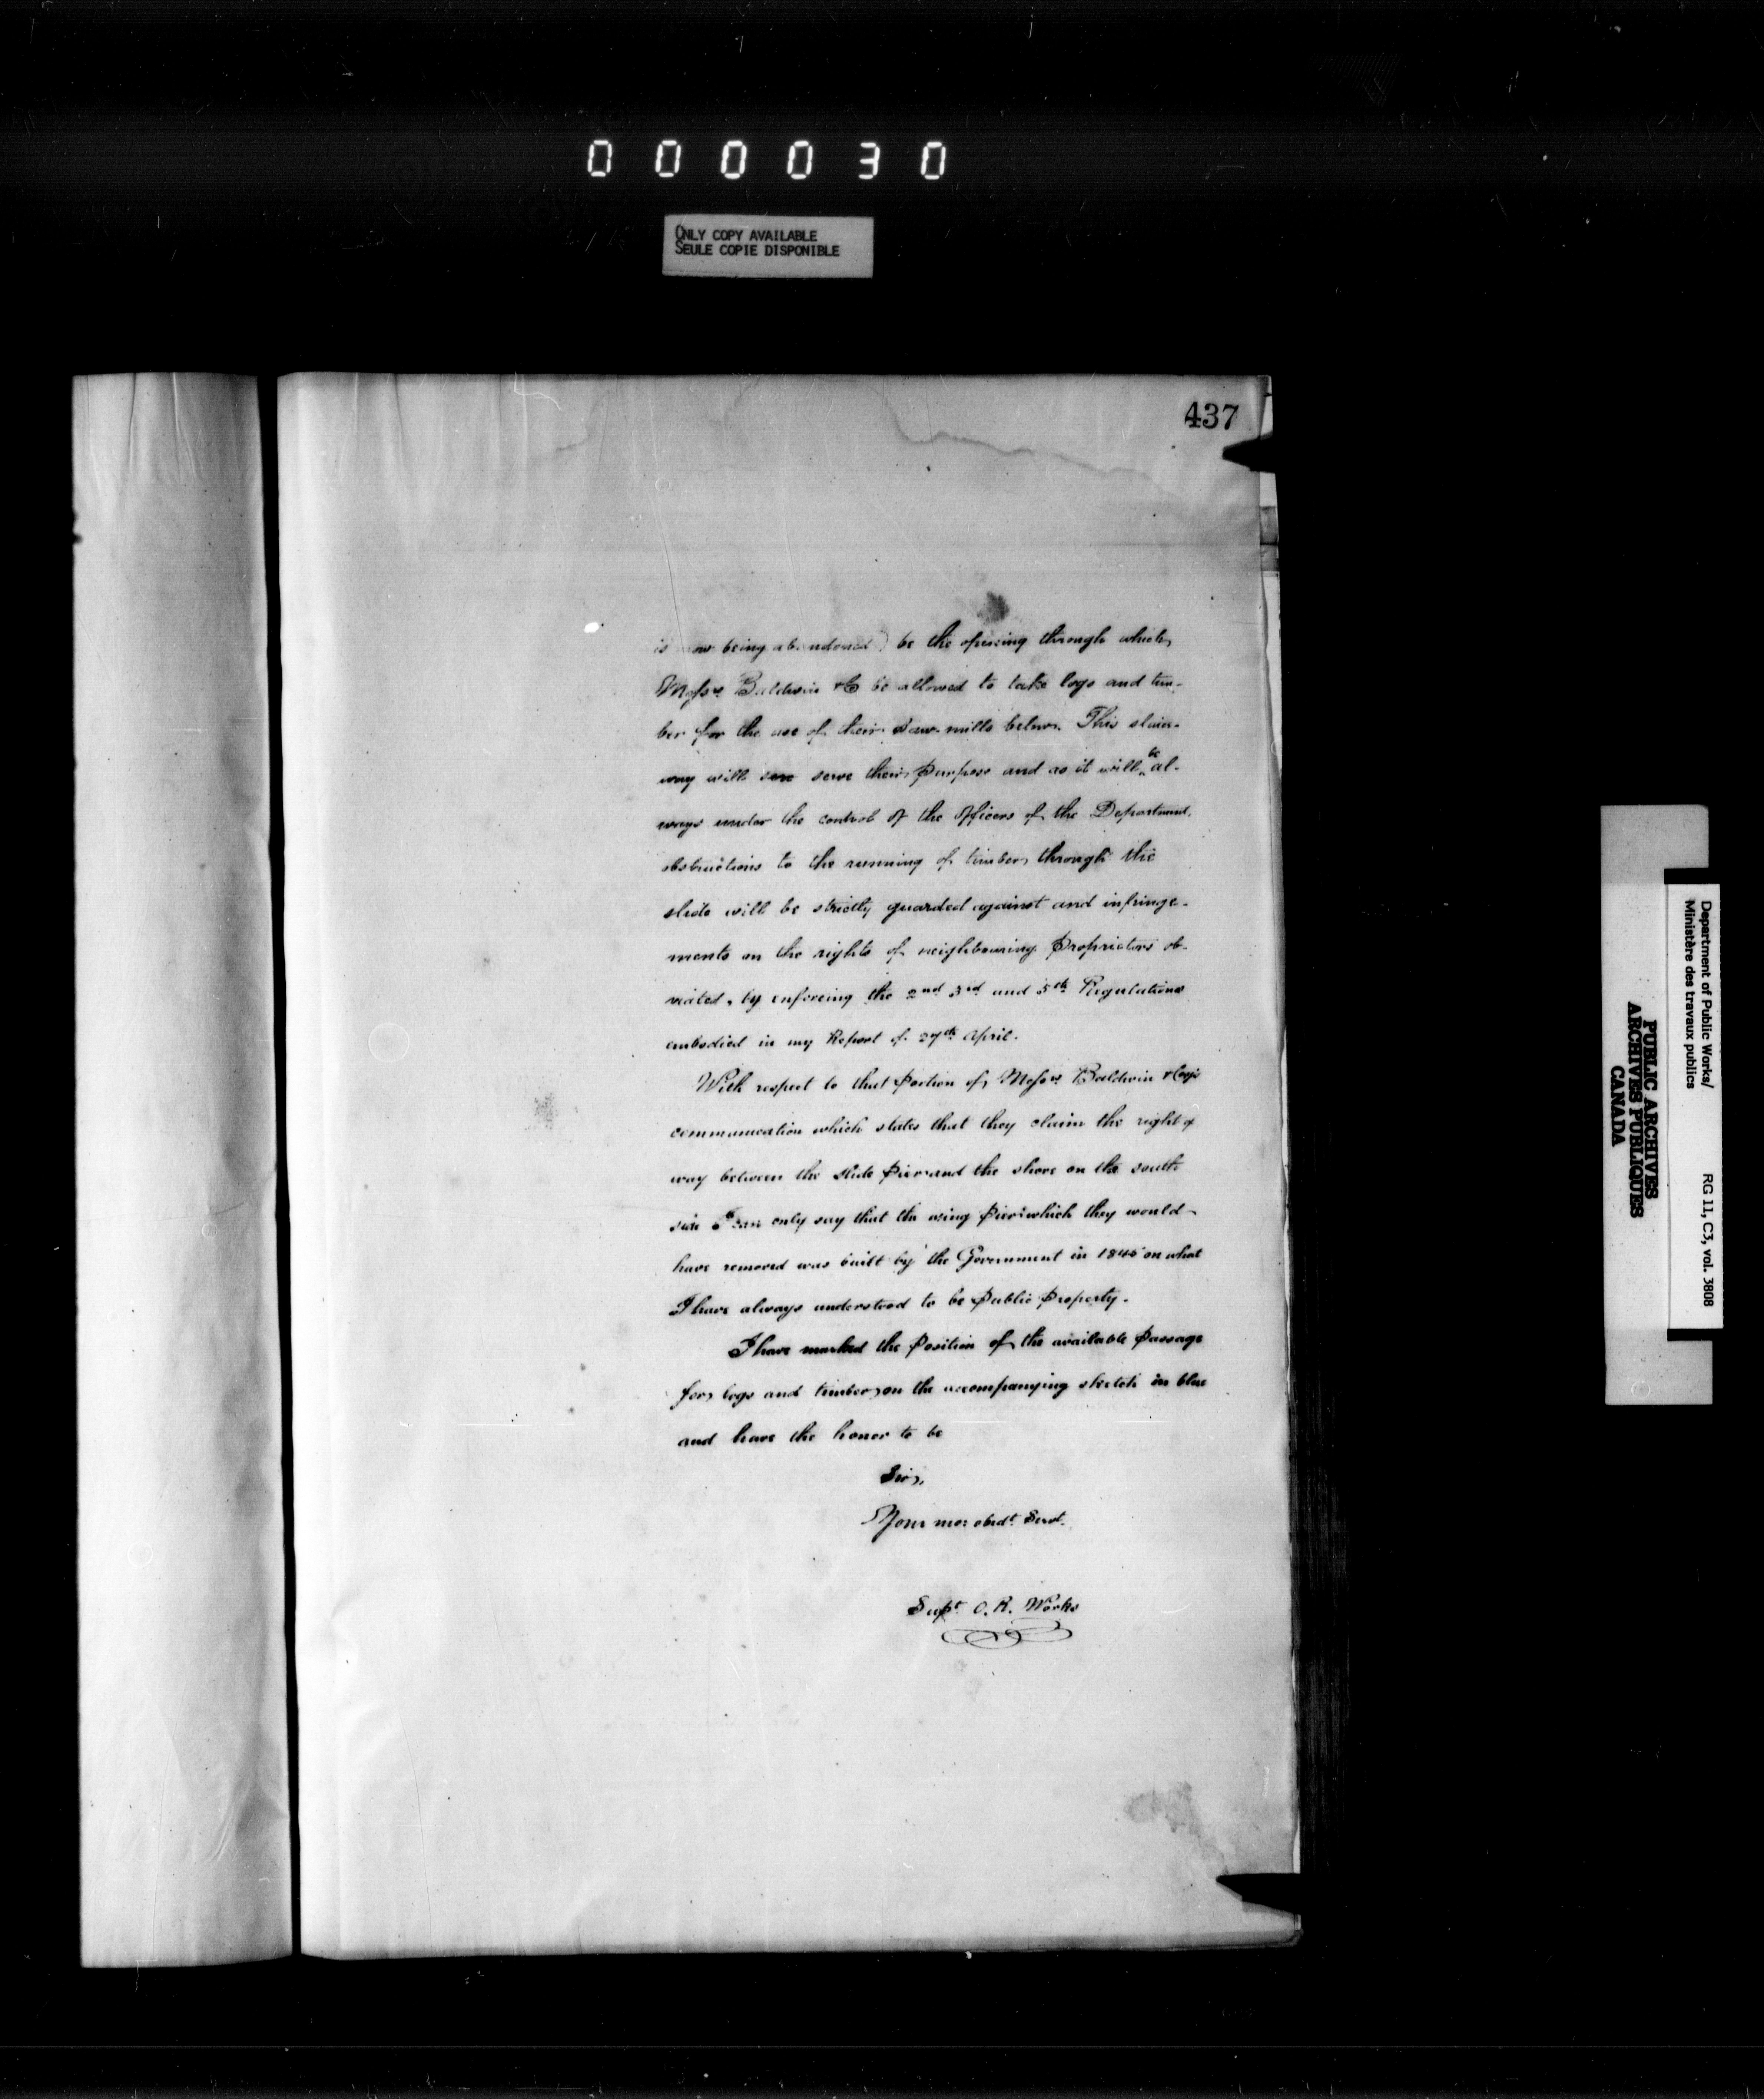 000030
ONLY COPY AVAILABLE
SEULE COPIE DISPONIBLE
437
is now being abandoned) be the opening through which
Messrs. Baldwin & Co be allowed to take logs and tim-
ber for the use of their Saw-mills below. This sluice-
way will serve their purpose and as it will be al-
ways under the control of the Officers of the Department,
obstructions to the running of timber through the
slide will be strictly guarded against and infringe-
ments on the rights of neighbouring Proprietors ob-
viated, by enforcing the 2nd 3rd and 5th Regulations
embodied in my Report of 27th April.
With respect to that portion of Messrs. Baldwin & Coy's
communication which states that they claim the right of
way between the slide pier and the shore on the south
side I can only say that the wing pier which they would
have removed was built by the Government in 1845 on what
I have always understood to be Public Property.
I have marked the Position of the available Passage
for logs and timber on the accompanying sketch in blue
and have the honor to be
Sir,
Your mo: obedt. Servt.
Supt. O. R. Works
Department of Public Works/
Ministère des travaux publics
RG 11, C3, vol. 3808
PUBLIC ARCHIVES
ARCHIVES PUBLIQUES
CANADA